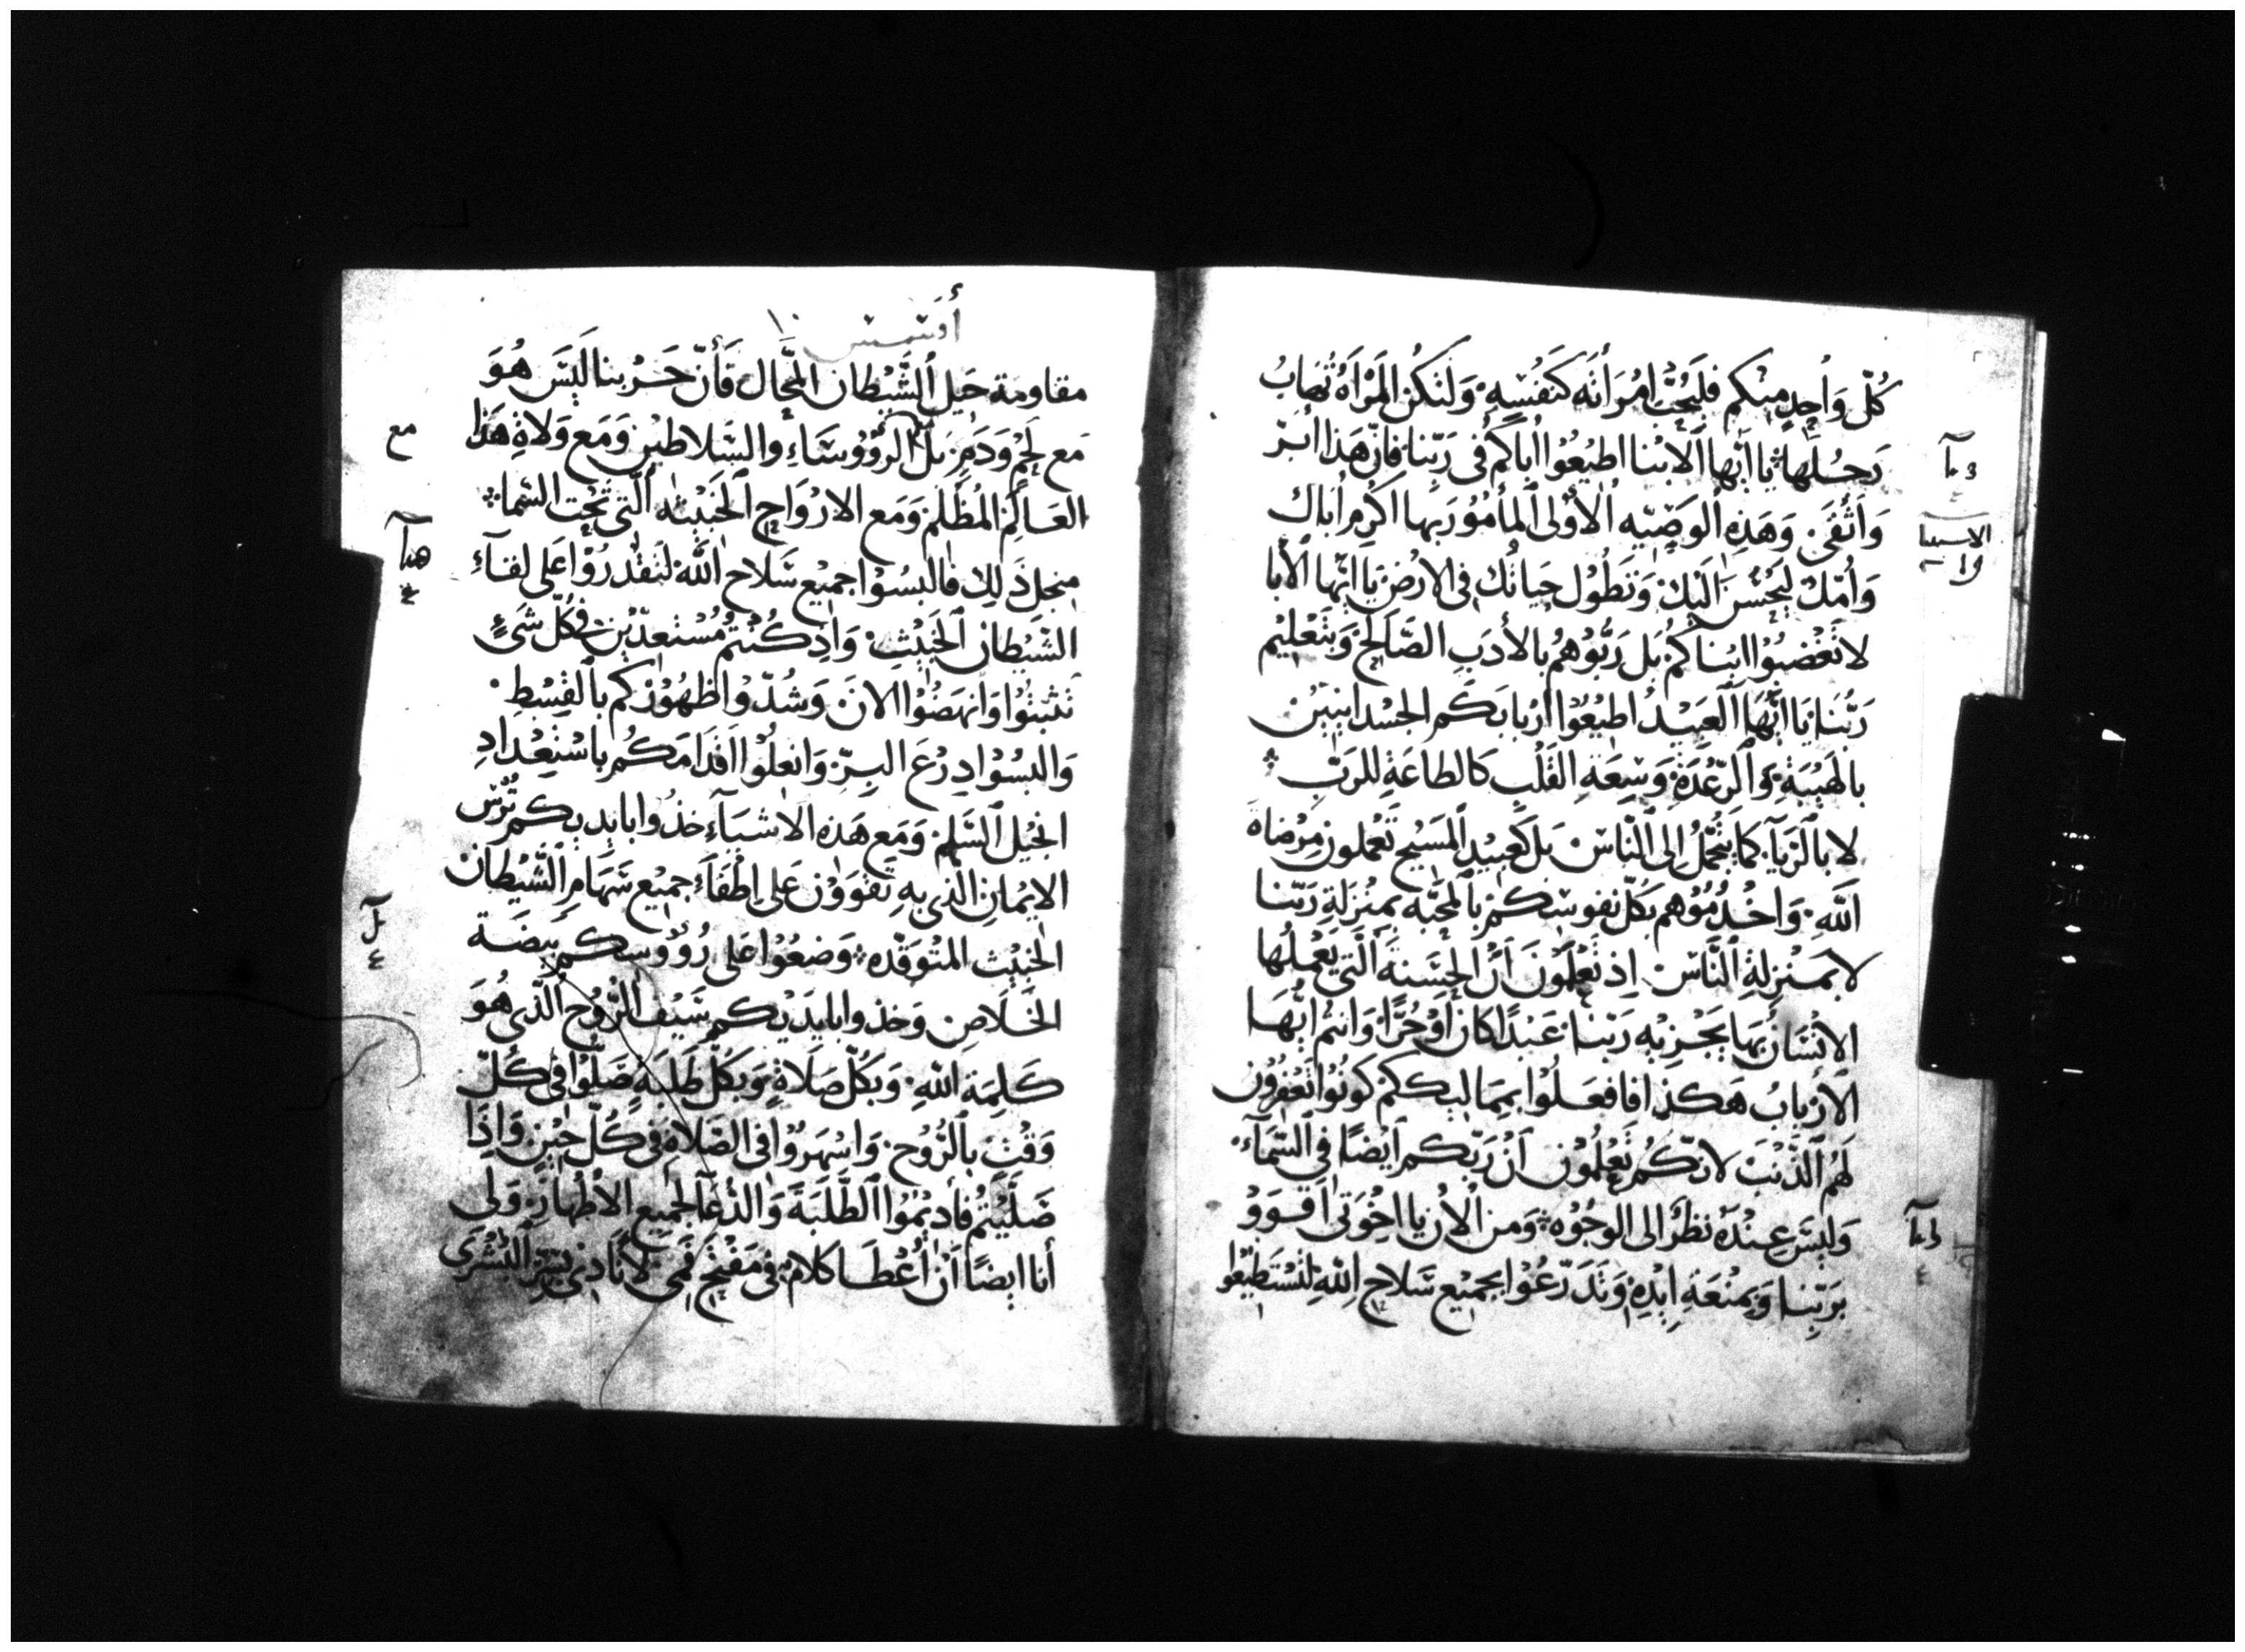 كُلّ وَاُحِدٍ مِنْكم فليَحُبّ امُرَأتَه كَنَفُسْهِ وَلتَكُن المَرْأهُ تُهابُ
رَجُلَها يا ايّها الابْنا اطيْعُوْا اباكمُ في رَبِّنا فإنّ هَذا ابرّ
وَاَتْقَى وَهَذِهِ الوَصِّيه الأوْلى المأمُوُر بها اكرم اباك
وَأُمّكَ ليَحُسُنَ الَيْكَ وَتَطُوْل حياتُك في الارْض يَا ايّها الأبا
لا تُغْضِبُوْا ابْناكمُ بَل رَبُّوْهمُ بالأدَبِ الصَّالحَ وَبتَعْليْم
رَبّنَا يَا ايُّهَا العَبيْدُ اطيْعُوْا ارْبابَكَم الجسْدانييْن
بالهَيْبَةِ وَالرّعْدَةِ وَسِعَةِ القَلْبِ كالطاعَةِ للرَبّ
لا بالرّيآ كما يتُجمّلُ اِلى النّاسْ بَل كَعبيْدِ المَسْيحِ تَعْملون مِرْضاة
الله وَاخْدُمُوْهم بكلّ نفوسْكمْ بالمحَبّه بمنْزلَةِ رَبّنا
لا بمَنْزلةِ النَّاسْ اِذ تعْلَمُوْنَ اَنّ الحسَنةَ الّتي يَعْمَلُها
الاِنْسَانُ بها يَجْزيْهِ رَبّنا عَبْدًا كان أوْحُرًّا وَانتمُ ايُّهَا
الارْبابُ هَكذا فافعَلُوْا بممَاليكِكُمْ كوْنُوْا تَغْفِرُوْن
لَهُم الذّنْبَ لانّكمُ تَعْلَمُوْن اَنْ رَبّكم ايْضًا في السّمآء
وَليْسَ عِنْدهُ نَظرٌ الى الوجُوْه وَمن الأن يا اخْوَتى اقوَوْ
برَبّنا وَبمنْعَةِ ايْدِهِ وَتَدَرّعُوْا بجميْع سَلاح الله لتَسْتَطيْعوا
ديآ
الاسبيا
ديآ
أفسس ١٠
مقاومة حَيل الشَّيْطان المحَّال فَأنّ حَرْبنا لَيْسَ هُوَ
مَع لَحْمٍ وَدَمٍ بَل مع الرّؤوْسَاءِ والسّلاطيْن وَمَع وَلاةِ هَذا
العَالَم المُظْلَم وَمَع الارْوَاح الخَبيْثه الّتي تَحْت السّما
منجلَ ذَلِك فالبسُوْا جميْع سَلاح الله لتَقْدرُوْا عَلى لقآء
الشّيْطان الخَبيْثِ وَاِذ كُنْتمُ مُسْتعدّيْن في كُلّ شَيْءٍ
تَثبتُوْا وَانهَضُوْا الانَ وَشُدّوْا ظهُوْرَكم بالقِسْطِ
وَالبسُوْا دِرْعَ البرّ وَانعلُوْا اقدَامَكُم باسْتِعْدادِ
انجيْل السَّلم وَمَع هَذه الاشيَآء خذُوا بايديكم تُرْسَ
الايْمانِ الّذى بهِ تَقْوَوْن عَلى اِطْفآء جميْع سَهَام الشّيْطان
الخبيْث المتْوَقّده وَضعُوْا عَلى رُؤوسكم بيْضَة
الخَلاصِ وَخذوا بايدَيْكم سَيْفَ الرُّوْح الّذى هُوَ
كَلِمَة الله وَبكُلّ صَلاةٍ وَبكلّ طَلَبَهٍ صَلّوْا في كُلّ
وَقْتٍ بالرُّوْح وَاسْهَرُوْا في الصّلاةِ في كُلّ حِيْنٍ وَاِذَا
صَلّيْتمُ فأديْمُوْا الطّلبَةَ وَالدّعَآ لجميْع الأطْهَارِ وَلِى
أنا ايضًا اَنْ اُعْطَا كلامًا في مَفْتح فَمى لأنَادِى بسِرّ البُشْرَى
مع
هدآ